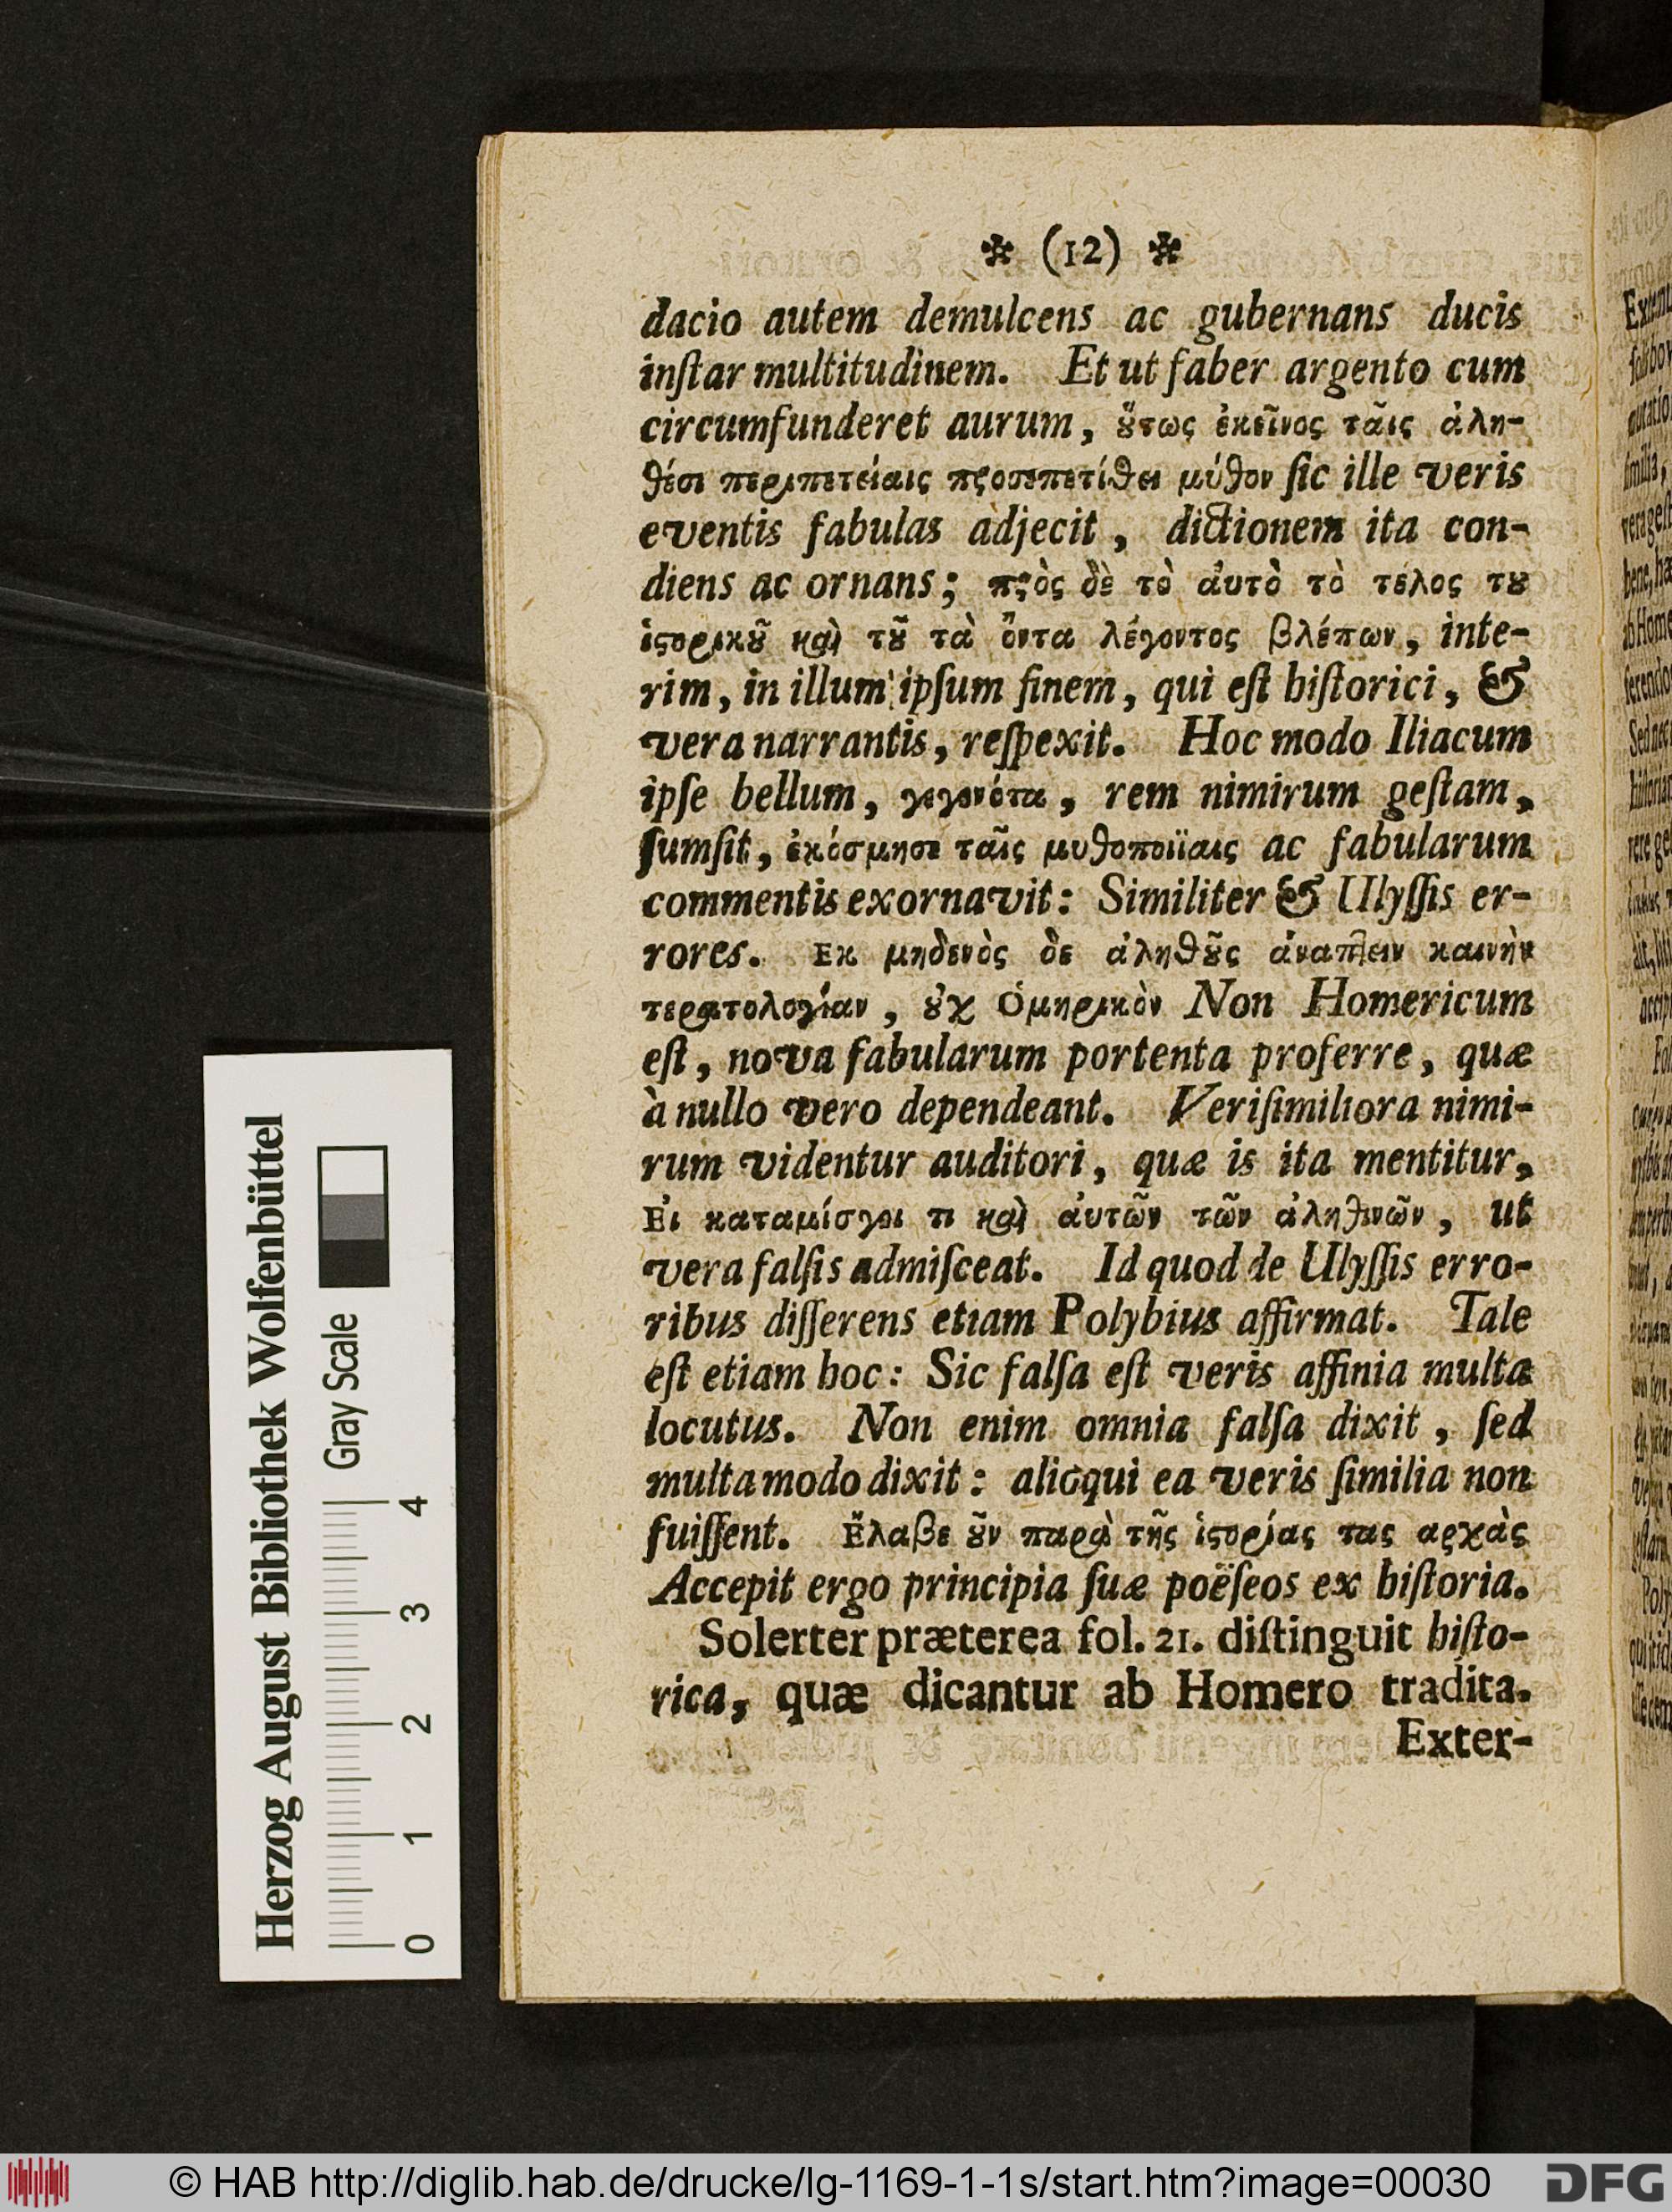 ❊ (12) ❊
dacio autem demulcens ac gubernans ducis
inſtar multitudinem. Et ut faber argento cum
circumfunderet aurum, ȣ̓́τως ἐκεῖνος τᾶις ἀλη-
θέσι περιπετείαις προσεπετίθει μύθον ſic ille veris
eventis fabulas adjecit, dictionem ita con-
diens ac ornans; πρὸς δὲ τὸ ἀυτὸ τὸ τέλος τȣ
ἱϛορικȣ͂ καὶ τȣ͂ τὰ ὄντα λέγοντος βλέπων, inte-
rim, in illum ipſum finem, qui eſt hiſtorici, &
vera narrantis, reſpexit. Hoc modo Iliacum
ipſe bellum, γεγονότα, rem nimirum geſtam,
ſumſit, ἐκόσμησε ταῖς μυθοποιΐαις ac fabularum
commentis exornavit: Similiter & Ulyſſis er-
rores. Εκ μηδενὸς δε ἀληθȣ͂ς ἀναπ͡ειν καινὴν
τερατολογίαν, ȣ̓χ Ὁμηρικὸν Non Homericum
eſt, nova fabularum portenta proferre, quæ
à nullo vero dependeant. Veriſimiliora nimi-
rum videntur auditori, quæ is ita mentitur,
Εἰ καταμίσγοι τι καὶ ἀυτῶν τῶν ἀληθινῶν, ut
vera falſis admiſceat. Id quod de Ulyſſis erro-
ribus diſſerens etiam Polybius affirmat. Tale
eſt etiam hoc: Sic falſa eſt veris affinia multa
locutus. Non enim omnia falſa dixit, ſed
multa modo dixit: alioqui ea veris ſimilia non
fuiſſent. Ἔλαβε ȣ͂ν παρὰ τῆς ἱϛορίας τας αρχὰς
Accepit ergo principia ſuæ poëſeos ex hiſtoria.
Solerter præterea fol. 21. diſtinguit hiſto-
rica, quæ dicantur ab Homero tradita.
Exter-
Herzog August Bibliothek Wolfenbüttel
Gray Scale
0 1 2 3 4
© HAB http://diglib.hab.de/drucke/lg-1169-1-1s/start.htm?image=00030
DFG